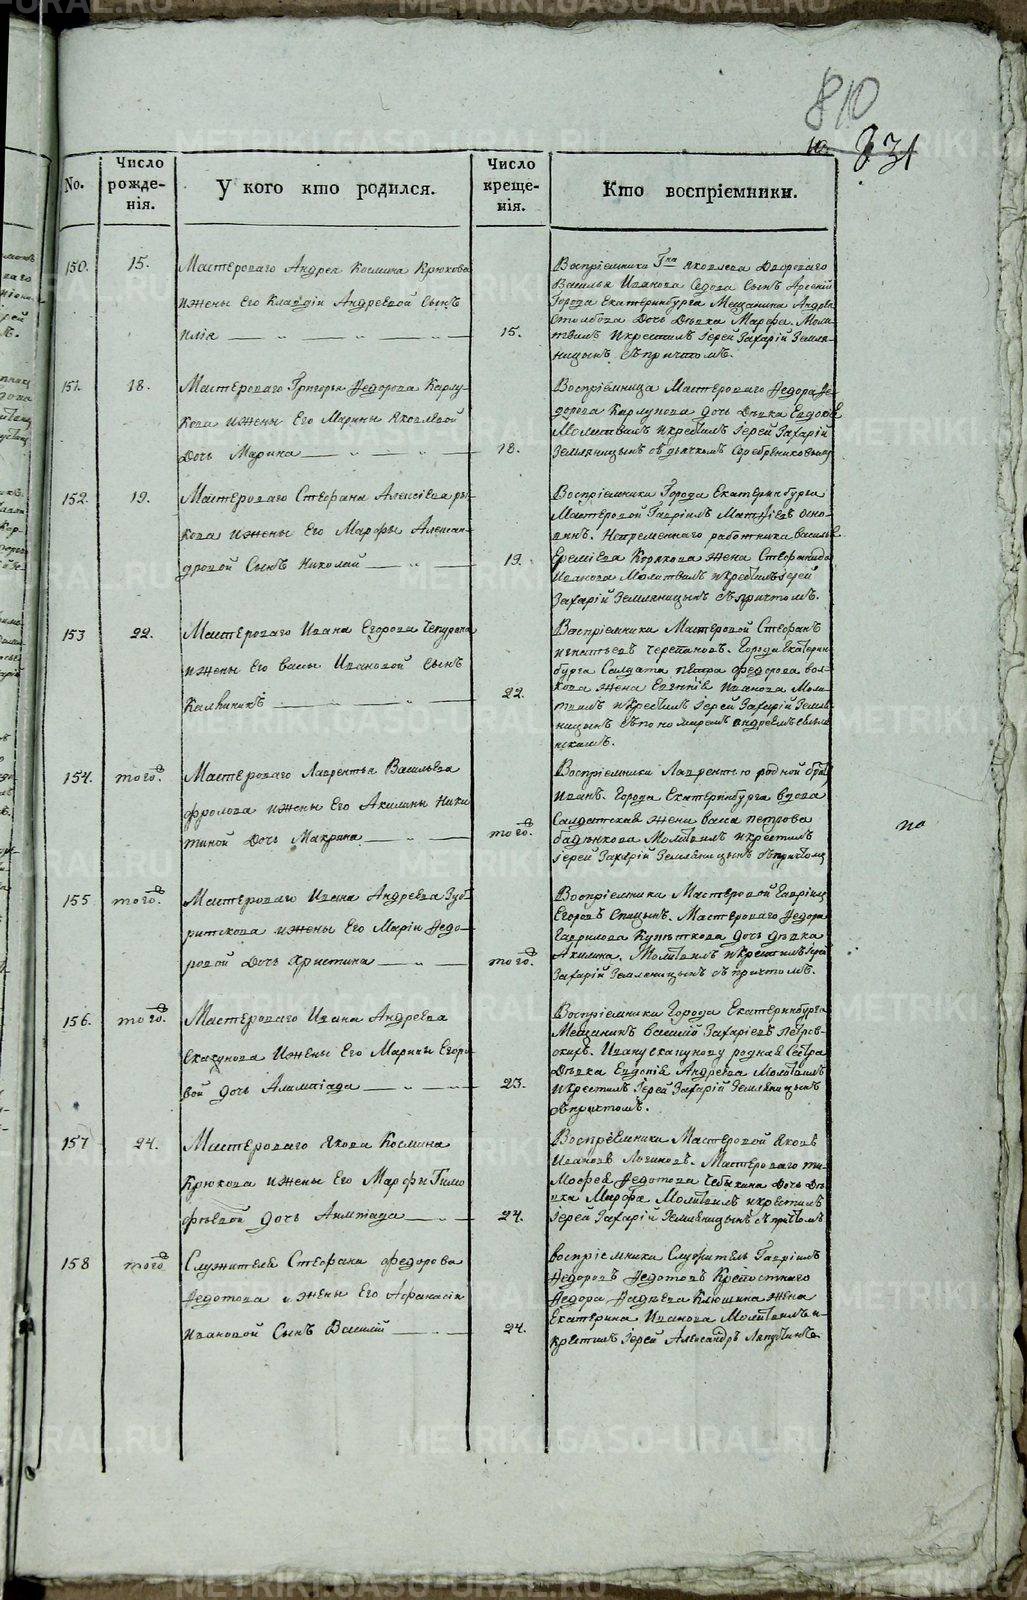 810
831
No.
Число рожде-нія.
У кого кто родился.
Число креще-нія.
Кто воспріемники.
150.
15.
Мастероваго Андрея Космина Крюкова
ижены Его Клавдіи Андреевой Сынъ
Илія
15.
Воспріемники Гна Яковлева Дворового
Василья Иванова Седова Сынъ Арсеній
Города Екатеринбурга Мещанина Андрея
Столбова Дочь Дѣвка Марфа. Моли-
твилъ Икрестилъ Іерей Захарій Земля-
ницынъ Съпричтомъ.
151.
18.
Мастероваго Григорья Федорова Карлу-
кова ижены Его Марины Яковлевой
Дочь Марина
18.
Воспріемница Мастероваго Федора Фе-
дорова Дочь Дѣвка Евдокія
Молитвилъ икрестилъ Іерей Захарій
Земляницынъ съ дьячкомъ Серебрениковымъ
152.
19.
Мастероваго Стефана Алексіева ры-
кова ижены Его Марфы Алексан-
дровой Сынъ Николай
19.
Воспріемники Города Екатеринбурга
Мастеровой Гавріилъ Матфіевъ
Непременнаго работника Василья
Еремѣева Корякова жена Стефанида
Иванова Молитвилъ икрестилъ Іерей
Захарій Земляницынъ съпричтомъ.
153
22.
Мастероваго Ивана Егорова Чепурова
ижены Его Вассы Ивановой Сынъ
Каллиникъ
22.
Воспріемники Мастеровой Стефанъ
Игнатьевъ Черепановъ. Города Екатерин-
бурга Солдата Петра Федорова вол-
кова жена Евгенія Иванова Моли-
твилъ икрестилъ Іерей Захарій Земля-
ницынъ съпономаремъ Андреемъ
154.
того.
Мастероваго Лаврентья Васильева
фролова ижены Его Акилины Ники
тиной Дочь Макрина
того.
Воспріемники Лаврентью родной братъ
Иванъ. Города Екатеринбурга вдова
Салдатская жена Васса Петрова
Молитвилъ икрестилъ
Іерей Захарій Земляницынъ съпричтомъ
155
того.
Мастероваго Ивана Андреева Зуб-
ритскова ижены Его Маріи Федо-
ровой Дочь Христина
того.
Воспріемники Мастеровой Гавріилъ
Егоровъ Спицынъ. Мастероваго Федора
Гаврилова Дочь Дѣвка
Акилина. Молитвилъ икрестилъ Іерей
Захарій Земляницынъ съпричтомъ.
156.
того.
Мастероваго Ивана Андреева
Скакунова Ижены Его Марины Егоро-
вой дочь Алимпіада
23.
Воспріемники Города Екатеринбурга
Мещанинъ Василій Захаріевъ Петров-
скихъ. Ивану Скакунову родная Сестра
Дѣвка Евдокія Андреева Молитвилъ
икрестилъ Іерей Захарій Земляницынъ
съпричтомъ.
157
24.
Мастероваго Якова Космина
Крюкова ижены Его Марфы Тимо
феевой дочь Алимпіада
24.
Воспріемники Мастеровой Яковъ
Ивановъ Логиновъ. Мастероваго Ти-
мофея Федотова Чебыкина Дочь Дѣ-
вка Марфа Молитвилъ икрестилъ
Іерей Захарій Земляницынъ съпричтомъ
158
того
Служителя Стефана Федорова
Федотова ижены Его Афанасіи
Ивановой Сынъ Василій
24.
воспріемники Служитель Гавріилъ
Федоровъ Федотовъ Крепостнаго
Федора Фадѣева Клюшина жена
Екатерина Иванова Молитвилъ и
крестилъ Іерей Александръ
но
METRIKI.GASO-URAL.RU